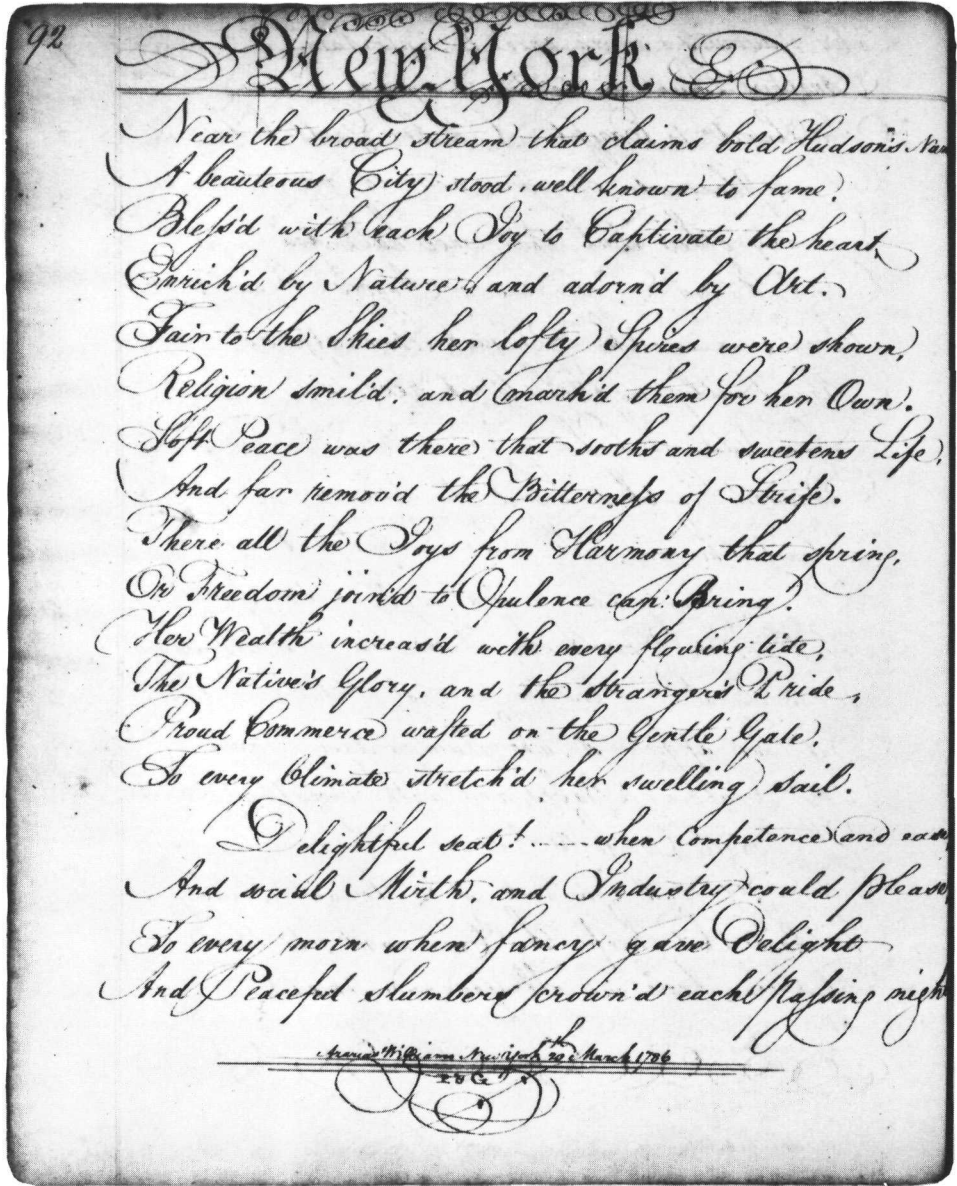 92
New York &c.
Near the broad stream that claims bold Hudson's Nam
A beauteous City stood, well known to fame.
Bless'd with each Joy to Captivate the heart,
Enrich'd by Nature, and adorn'd by Art.
Fair to the Skies her lofty Spires were shown,
Religion smil'd, and mark'd them for her Own.
Soft Peace was there that sooths and sweetens Life,
And far remov'd the Bitterness of Strife.
There all the Joys from Harmony that spring,
Or Freedom join'd to Opulence can Bring.
Her Wealth increas'd with every flowing tide,
The Native's Glory, and the Stranger's Pride,
Proud Commerce wafted on the Gentle Gale,
To every Climate stretch'd her swelling sail.
Delightful seat! ..... when Competence and ease
And social Mirth, and Industry could please
To every morn when fancy gave Delight
And Peaceful slumbers crown'd each passing night
Williams New York 29th March 1786